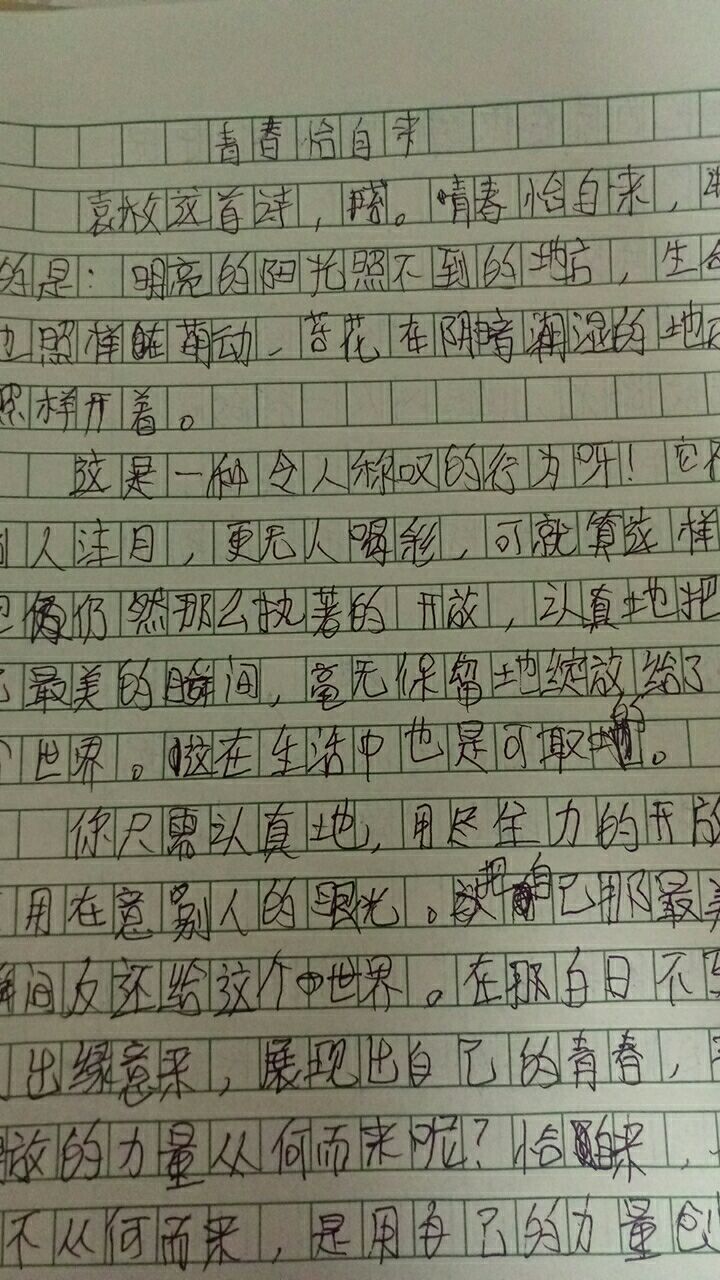 青春恰自来
袁枚这首诗，。青春恰自来，
的是：明亮的阳光照不到的地方，生命
也照样在萌动、苔花在阴暗潮湿的地方
照样开着。
这是一种令人称叹的行为呀！它
人注目，更无人喝彩，可就算这样
仍然那么执著的开放，认真地把
最美的瞬间，毫无保留地绽放给了
世界。这在生活中也是可取的。
你只需认真地，用尽全力的开放
用在意别人的眼光。把自己那最美
瞬间反还给这个世界。在那白日不到
出缘意来，展现出自己的青春，
放的力量从何而来呢？恰自来，
不从何而来，是用自己的力量创